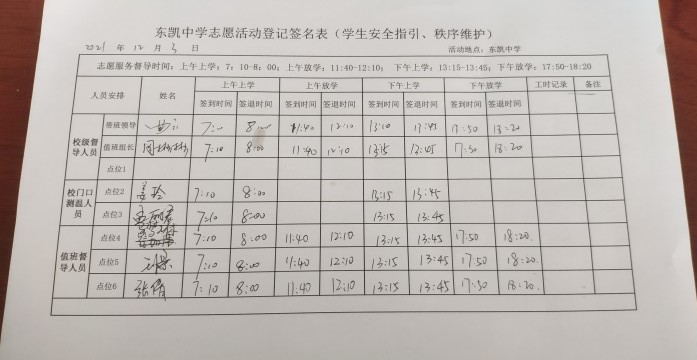 东凯中学志愿活动登记签名表（学生安全指引、秩序维护）
2021 年 12 月 3 日 活动地点：东凯中学
志愿服务督导时间：上午上学：7：10-8：00；上午放学：11:40-12:10； 下午上学：13:15-13:45；下午放学：17:50-18:20
人员安排 姓名 上午上学 上午放学 下午上学 下午放学 工时记录 备注
签到时间 签退时间 签到时间 签退时间 签到时间 签退时间 签到时间 签退时间
校级督导人员 带班领导 8:00 11:40 12:10 13:10 13:45 17:50 18:20
值班组长 周彬彬 7:10 8:00 11:40 12:10 13:15 13:45 17:50 18:20
点位1
校门口测温人员 点位2 7:10 8:00 13:15 13:45
点位3 7:10 8:00 13:15 13:45
值班督导人员 点位4 7:10 8:00 11:40 12:10 13:15 13:45 17:50 18:20.
点位5 7:10 8:00 11:40 12:10 13:15 13:45 17:50 18:20.
点位6 张倩 7:10 8:00 11:40 12:10 13:15 13:45 17:50 18:20.